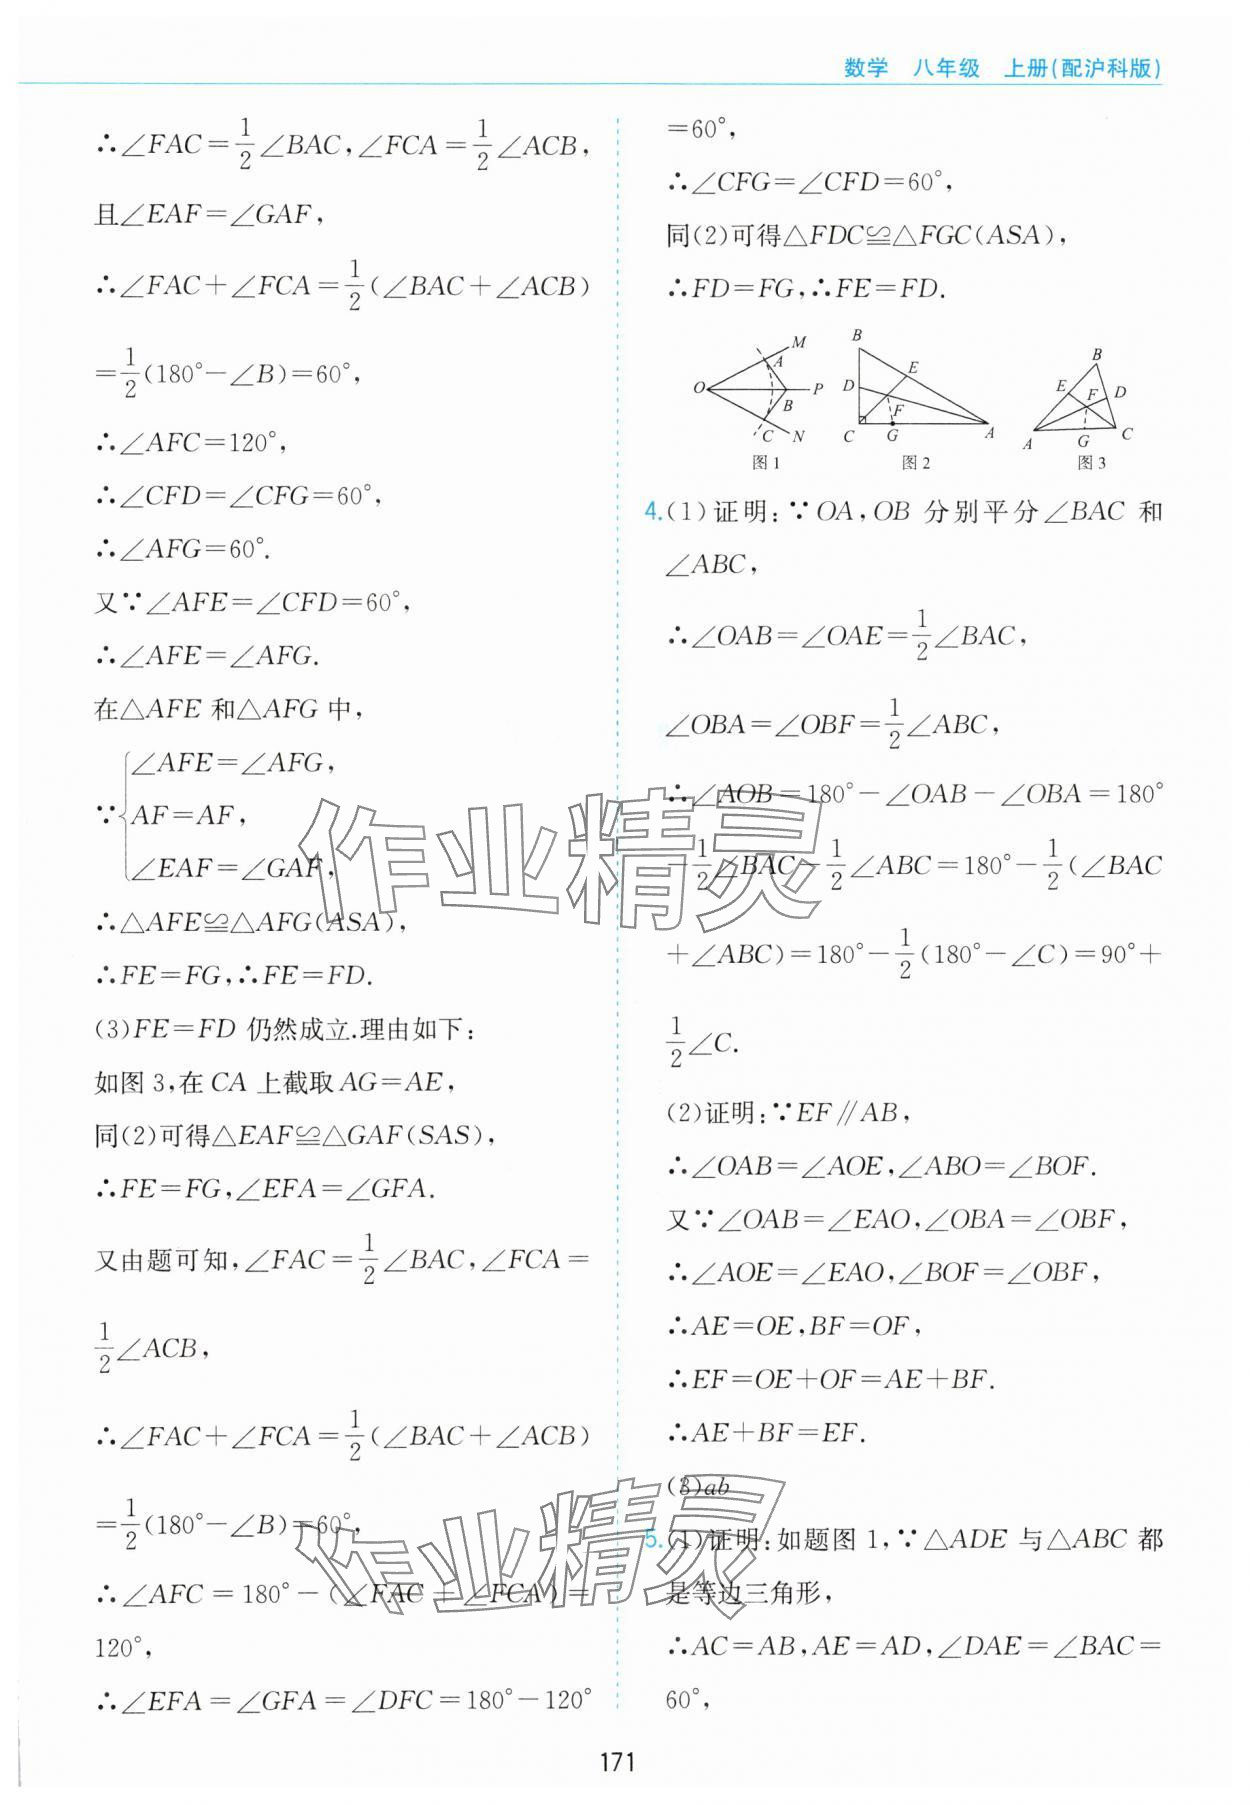 数学 八年级 上册(配沪科版)
∴∠FAC=1/2∠BAC,∠FCA=1/2∠ACB,
且∠EAF=∠GAF,
∴∠FAC+∠FCA=1/2(∠BAC+∠ACB)
=1/2(180°-∠B)=60°,
∴∠AFC=120°,
∴∠CFD=∠CFG=60°,
∴∠AFG=60°.
又∵∠AFE=∠CFD=60°,
∴∠AFE=∠AFG.
在△AFE 和△AFG 中,
∠AFE=∠AFG,
∵{AF=AF,
∠EAF=∠GAF,
∴△AFE≌△AFG(ASA),
∴FE=FG,∴FE=FD.
(3)FE=FD 仍然成立.理由如下:
如图 3,在 CA 上截取 AG=AE,
同(2)可得△EAF≌△GAF(SAS),
∴FE=FG,∠EFA=∠GFA.
又由题可知,∠FAC=1/2∠BAC,∠FCA=
1/2∠ACB,
∴∠FAC+∠FCA=1/2(∠BAC+∠ACB)
=1/2(180°-∠B)=60°,
∴∠AFC=180°-(∠FAC+∠FCA)=
120°,
∴∠EFA=∠GFA=∠DFC=180°-120°
=60°,
∴∠CFG=∠CFD=60°,
同(2)可得△FDC≌△FGC(ASA),
∴FD=FG,∴FE=FD.
M
A
O
P
B
C N
图 1
B
E
D
F
C G A
图 2
B
E F D
A G C
图 3
4.(1)证明:∵OA,OB 分别平分∠BAC 和
∠ABC,
∴∠OAB=∠OAE=1/2∠BAC,
∠OBA=∠OBF=1/2∠ABC,
∴∠AOB=180°-∠OAB-∠OBA=180°
-1/2∠BAC-1/2∠ABC=180°-1/2(∠BAC
+∠ABC)=180°-1/2(180°-∠C)=90°+
1/2∠C.
(2)证明:∵EF∥AB,
∴∠OAB=∠AOE,∠ABO=∠BOF.
又∵∠OAB=∠EAO,∠OBA=∠OBF,
∴∠AOE=∠EAO,∠BOF=∠OBF,
∴AE=OE,BF=OF,
∴EF=OE+OF=AE+BF.
∴AE+BF=EF.
(3)ab
5.(1)证明:如题图 1,∵△ADE 与△ABC 都
是等边三角形,
∴AC=AB,AE=AD,∠DAE=∠BAC=
60°,
作业精灵
作业精灵
171